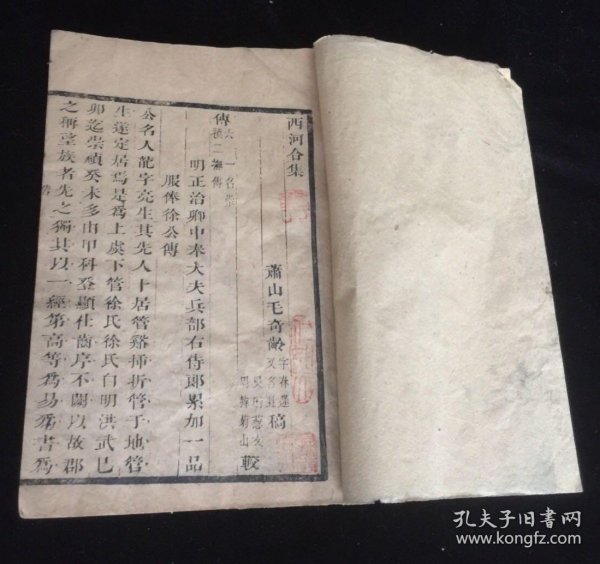 西河合集
蕭山毛奇齡 字春遲 又名甡 稿
較
傳
明正治卿中奉大夫兵部右侍郎累加一品
服俸徐公傳
公名人龍字亮生其先人卜居管谿揷折管于地管
生遂定居焉是爲上虞下管徐氏徐氏自明洪武巳
卯迄崇禎癸未多由甲科登顯仕齒序不闕以故郡
之稱望族者先之獨其以一經第高等爲易爲書爲
孔夫子旧书网
www.kongfz.com